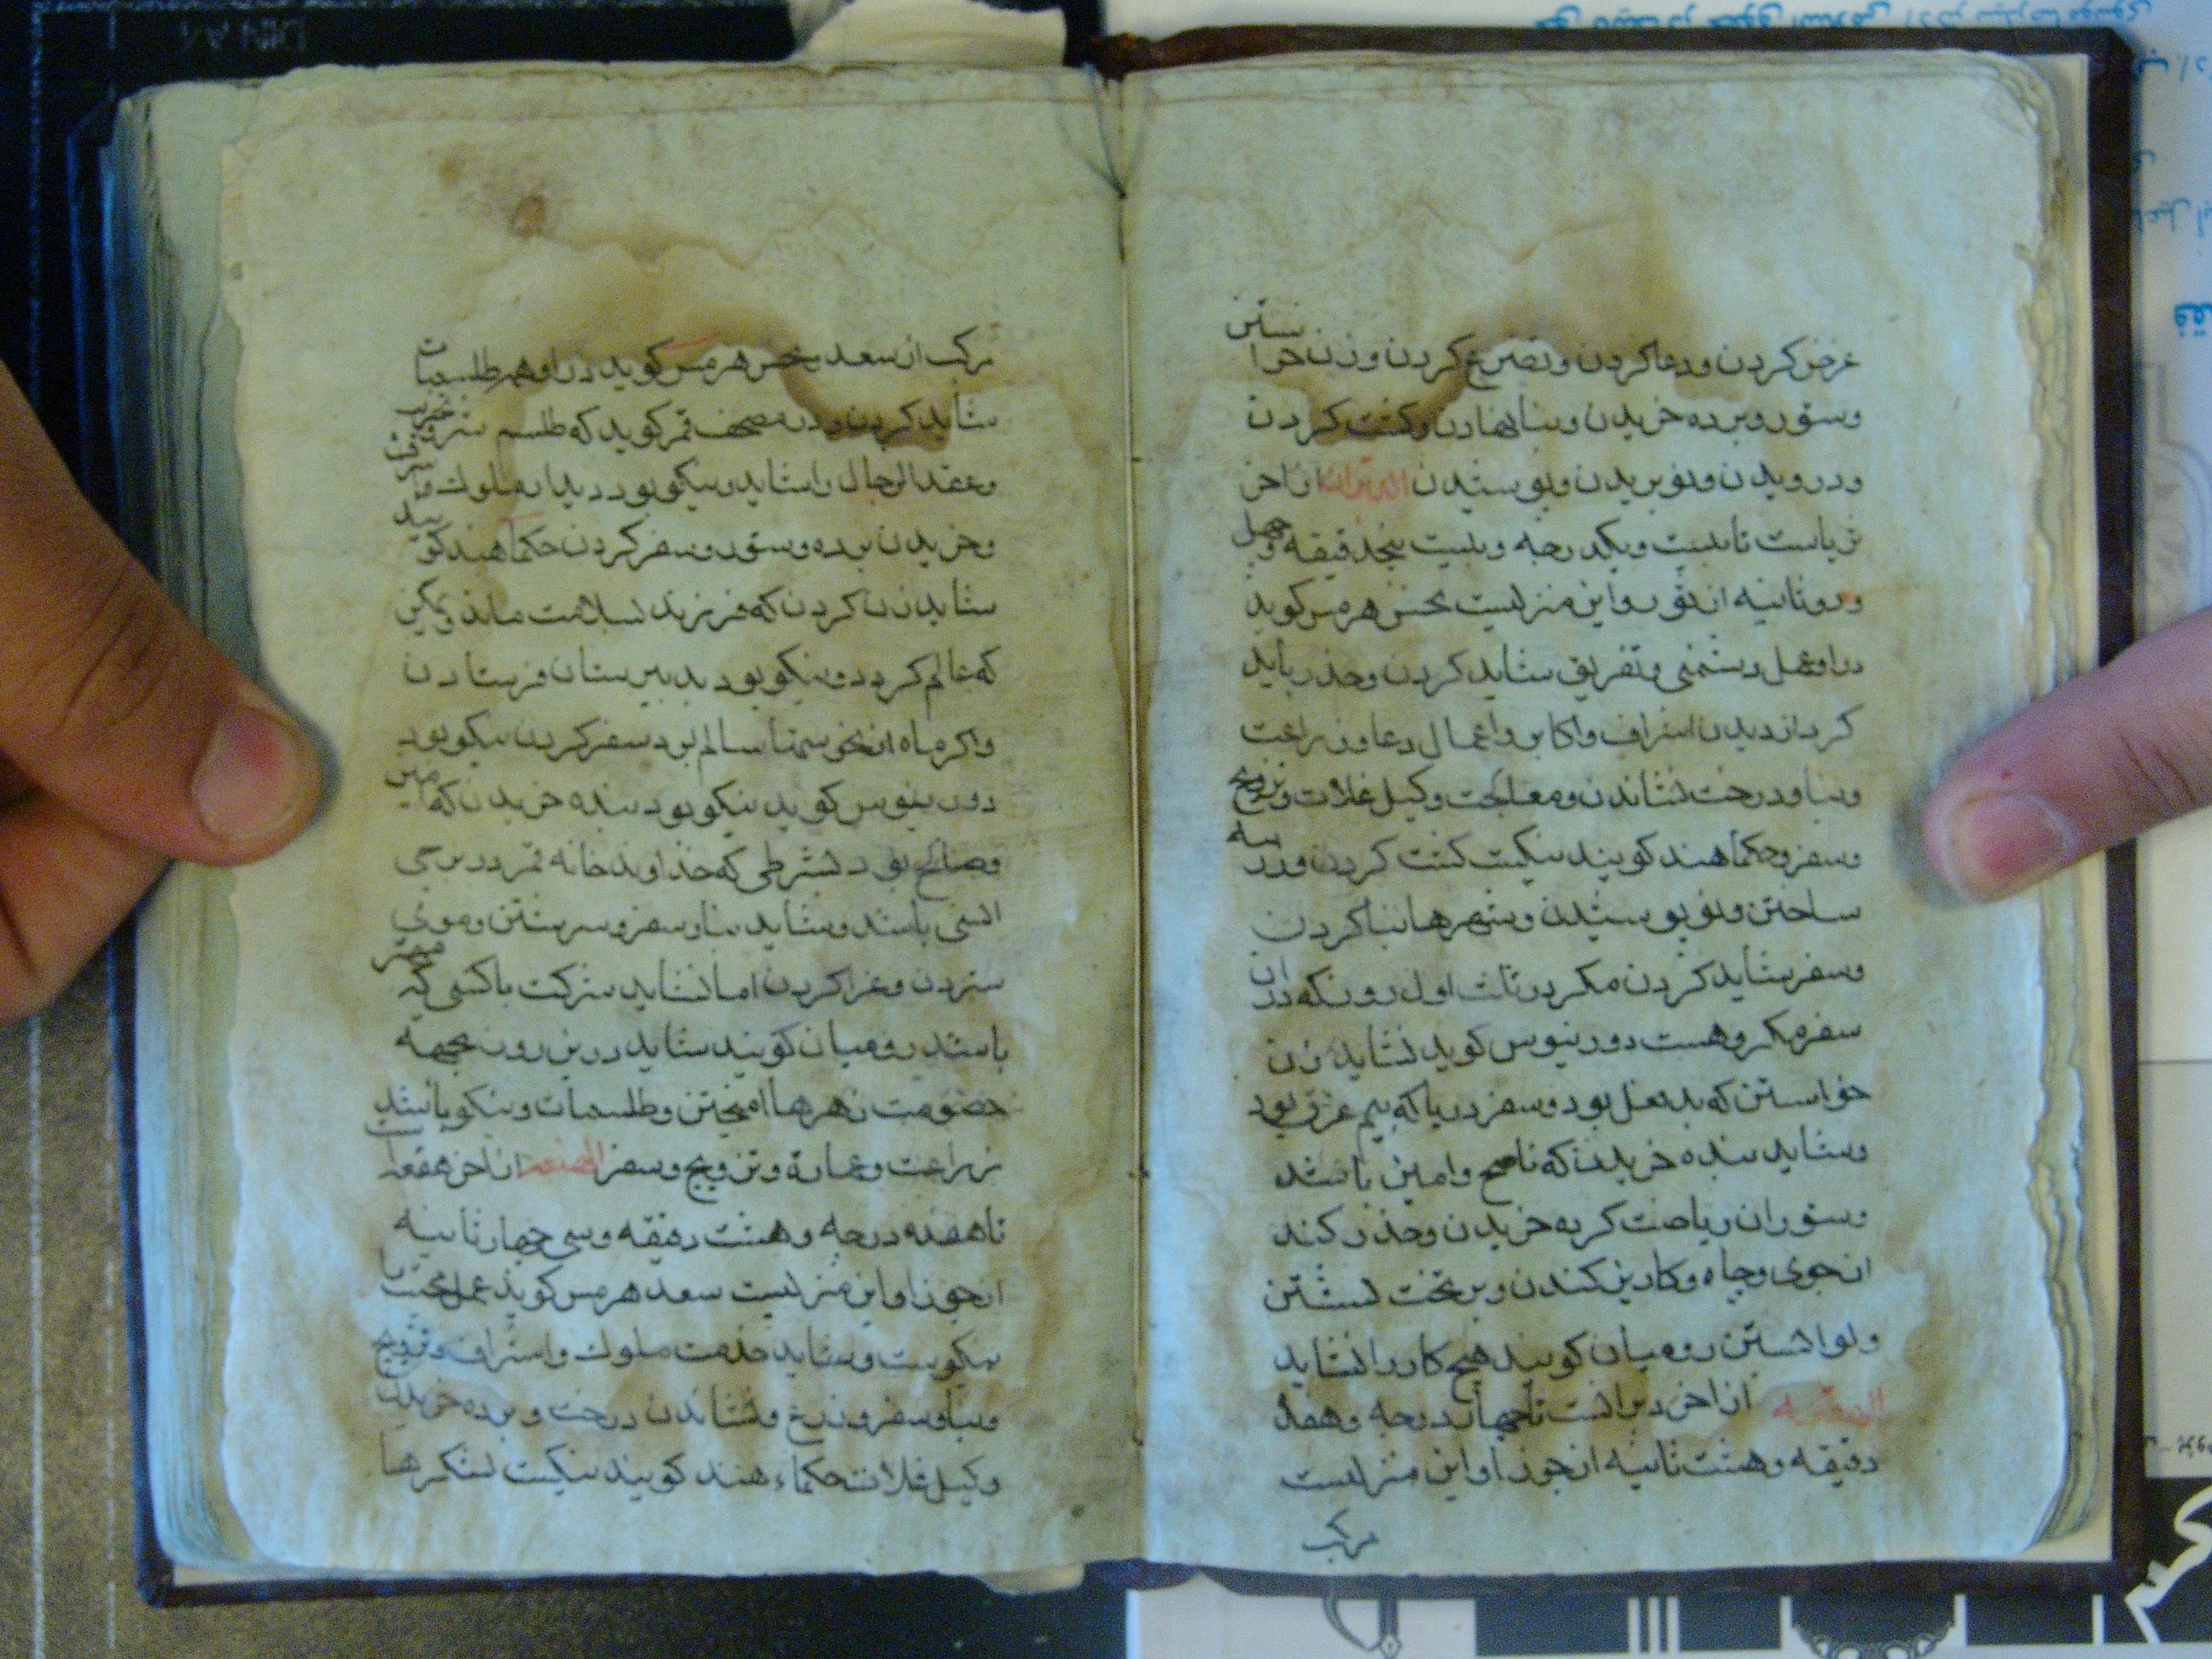 عرض کردن ودعا کردن وتضرع کردن وزن خواستن
وستور وبرده خریدن وبنا نهادن وکشت کردن
ودرویدن ونو بریدن ونو پوشیدن الدبران از آخر
ثریاست تا بیست ویکدرجه وبیست پنجدقیقه وچهل
ودو ثانیه از ثور واین منزلیست نحس هرمس کوید
در او عمل دشمنی وتفریق شاید کردن وحذر باید
کرد از دیدن اشراف واکابر واعمال دعا وزراعت
وبنا ودرخت نشاندن ومعالجت وکیل غلات وتزویج
وسفر وحکماء هند کویند نیکست کشت کردن ودر سه
ساختن ونو پوشیدن وشهرها بنا کردن
وسفر شاید کردن مکر در ثلث اول روز که در ان
سفر مکروهست دورینوس کوید نشاید زن
خواستن که بدفعل بود وسفر دریا که بیم غرق بود
وشاید بنده خریدن که ناصح وامین باشد
وستوران ریاضت کرده خریدن وحذر کند
از جوی وچاه وکاریز کندن وبر تخت نشستن
ولوا بستن رومیان کویند هیچ کار را نشاید
الهقعه از آخر دبرانست تا چهار درجه وهفده
دقیقه وهشت ثانیه از جوزا واین منزلیست
مرکب
مرکب از سعد نحس هرمس کوید در او همه طلسمات
شاید کردن ودر مصحف قمر کوید که طلسم
وعقد الرجال را شاید ونیکو بود دیدار ملوک
وخریدن برده وستور وسفر کردن حکماء هند کویند
شاید زن کردن که فرزند بسلامت ماند
که عالم کردد ونیکو بود بدبیرستان فرستادن
واکر ماه از نحوستها سالم بود سفر کردن نیکو بود
دورینوس کوید نیکو بود بنده خریدن که امین
وصالح بود بشرطی که خداوند خانه قمر در برجی
انسی باشد وشاید بنا وسفر وسر شستن وموی
ستردن وغزا کردن اما نشاید شرکت با کسی که مهتر
باشد رومیان کویند شاید درین روز بجهة
خصومت زهرها امیختن وطلسمات ونیکو باشد
زراعت وعمارة وتزویج وسفر الهنعه از آخر هقعه است
تا هفده درجه وهشت دقیقه وسی چهار ثانیه
از جوزا واین منزلیست سعد هرمس کوید عمل محبت را
نیکوست وشاید خدمت ملوک واشراف وتزویج
وبنا وسفر وزرع ونشاندن درخت وبرده خریدن
وکیل غلات حکماء هند کویند نیکست لشکرها